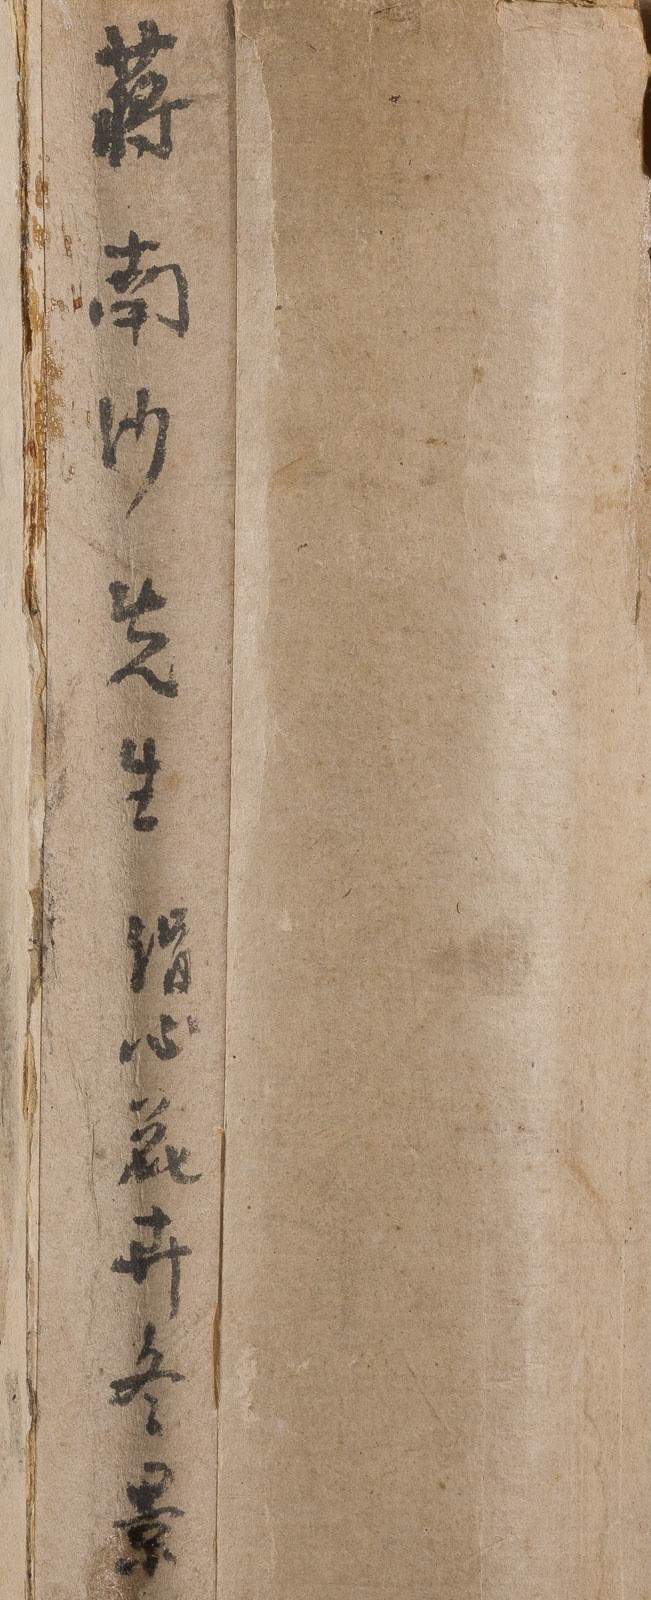 蔣南沙先生 絹心花卉冬景